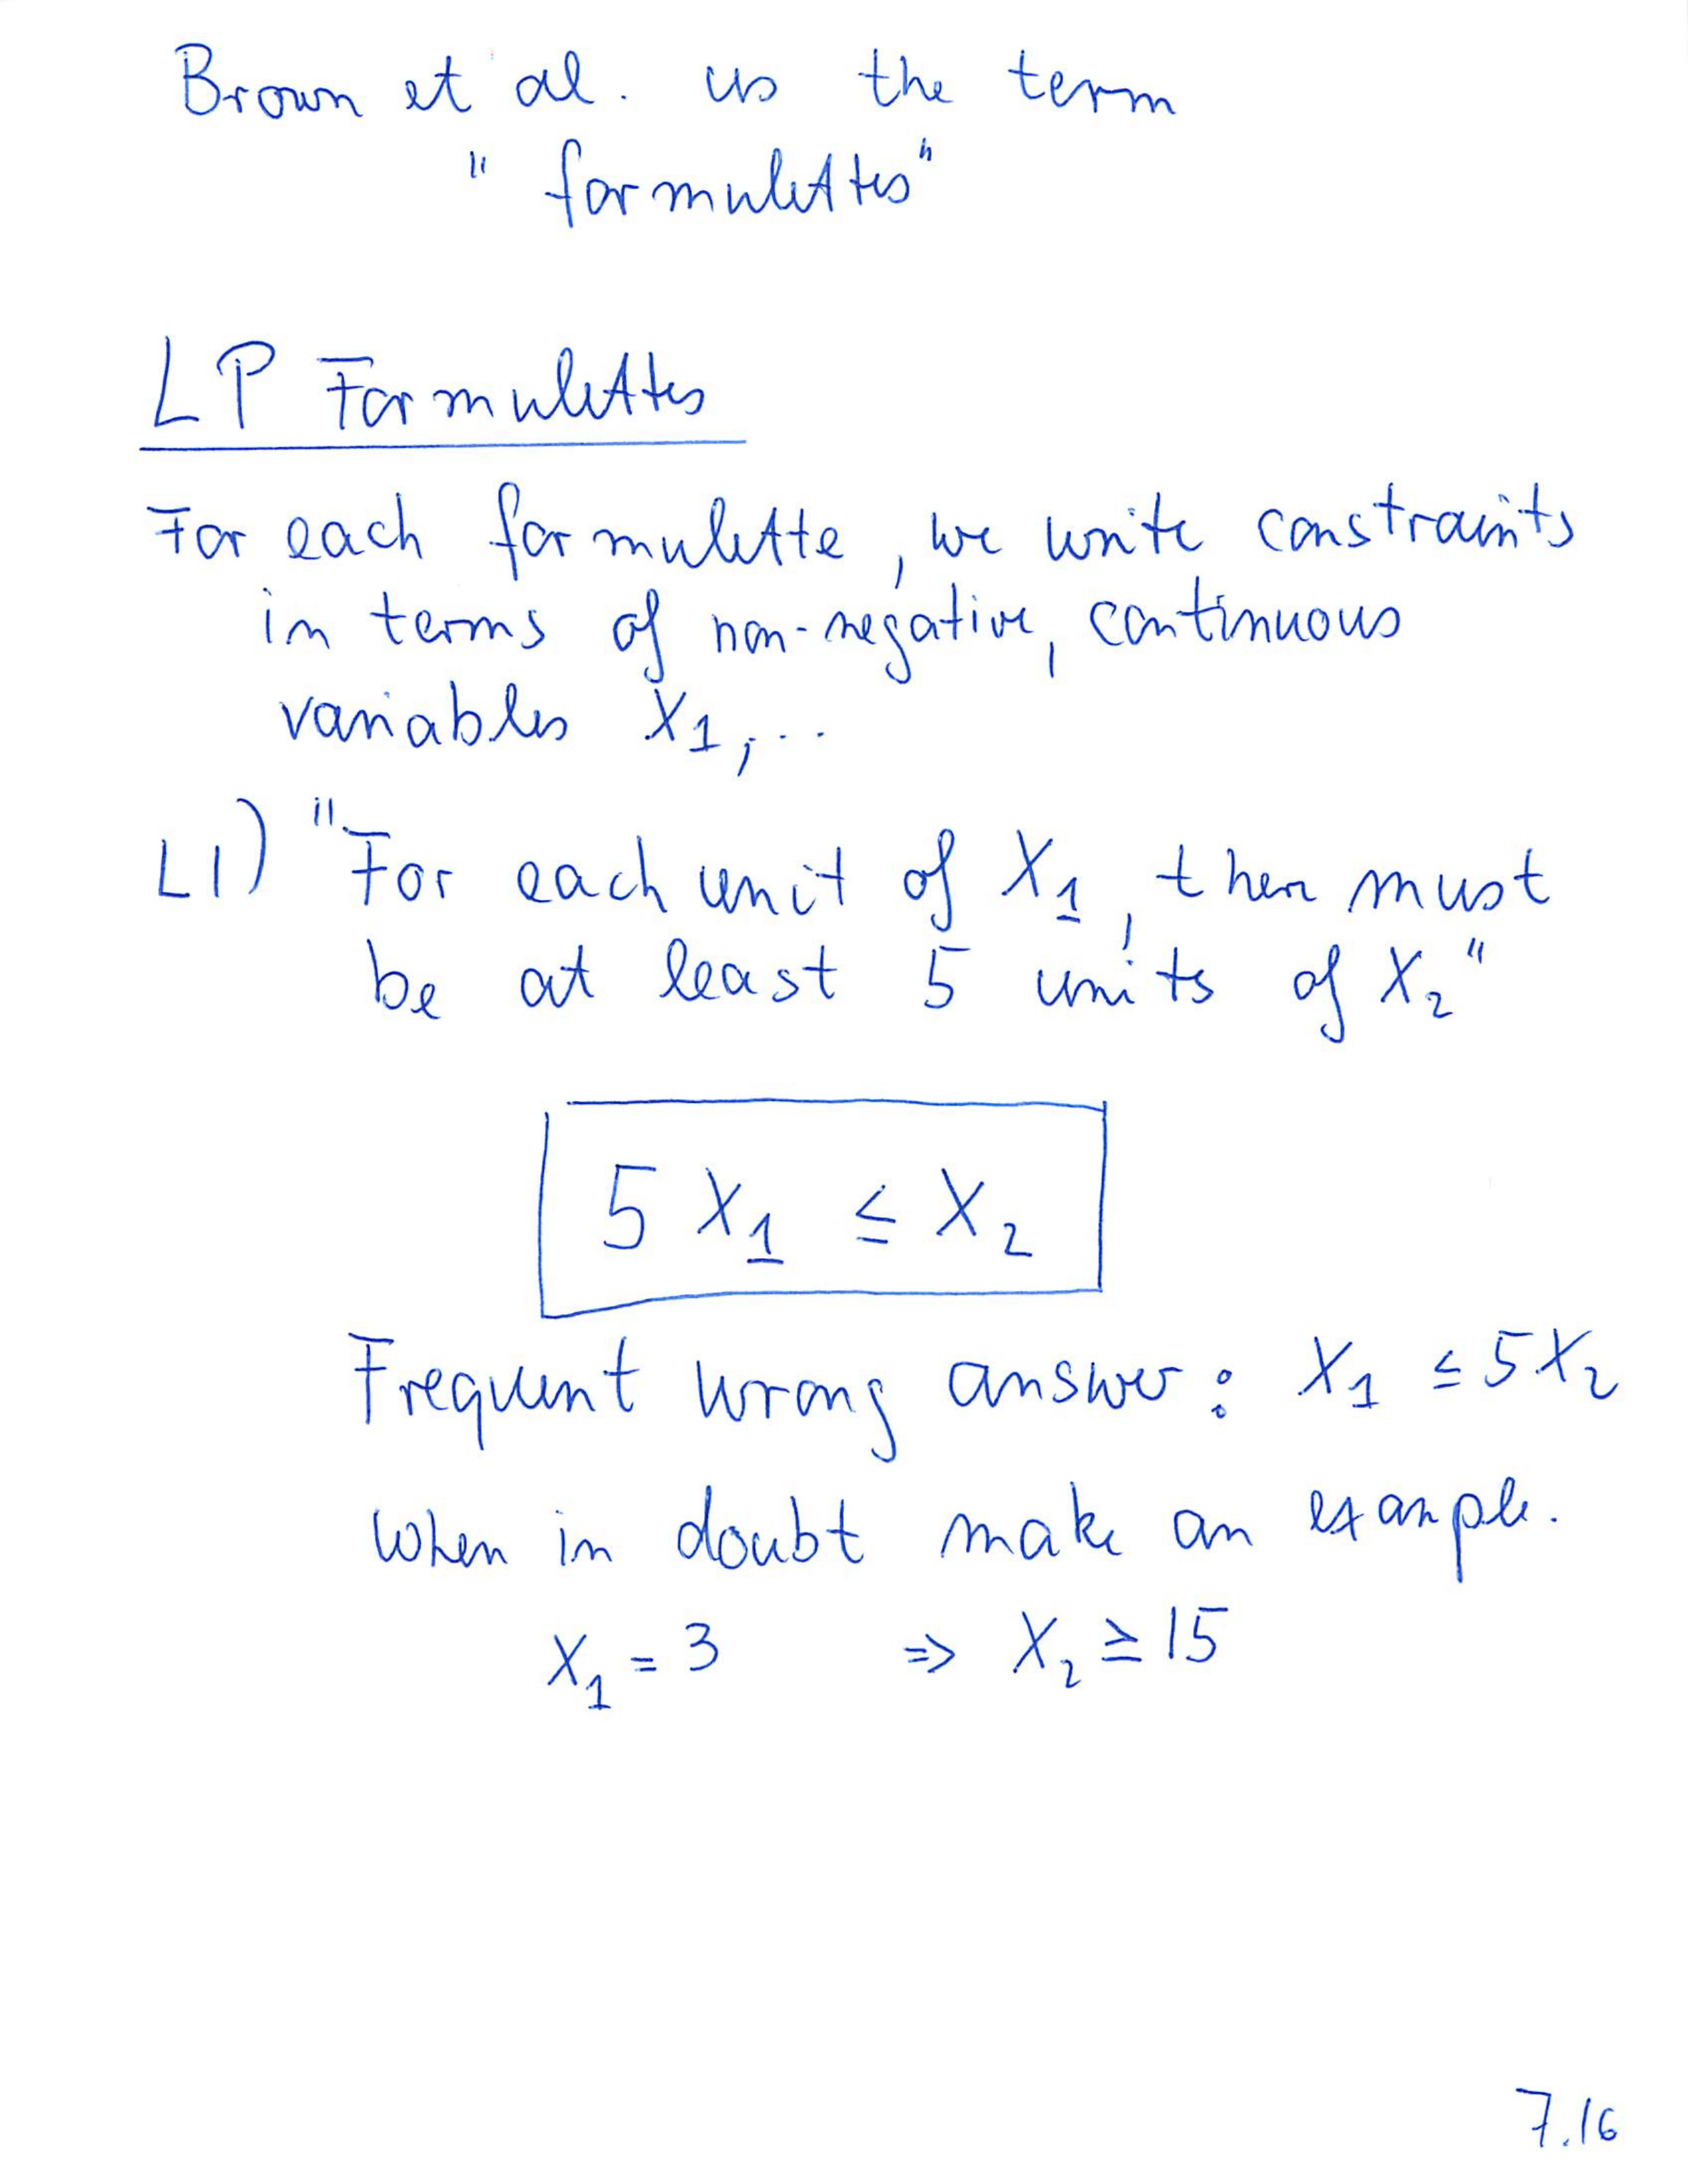 Brown et al. us the term
"formulettes"
LP Formulettes
For each formulette, we write constraints
in terms of non-negative, continuous
variables X₁,...
L1) "For each unit of X₁, there must
be at least 5 units of X₂"
5 X₁ ≤ X₂
Frequent wrong answer: X₁ ≤ 5X₂
When in doubt make an example.
X₁ = 3 ⇒ X₂ ≥ 15
7.16